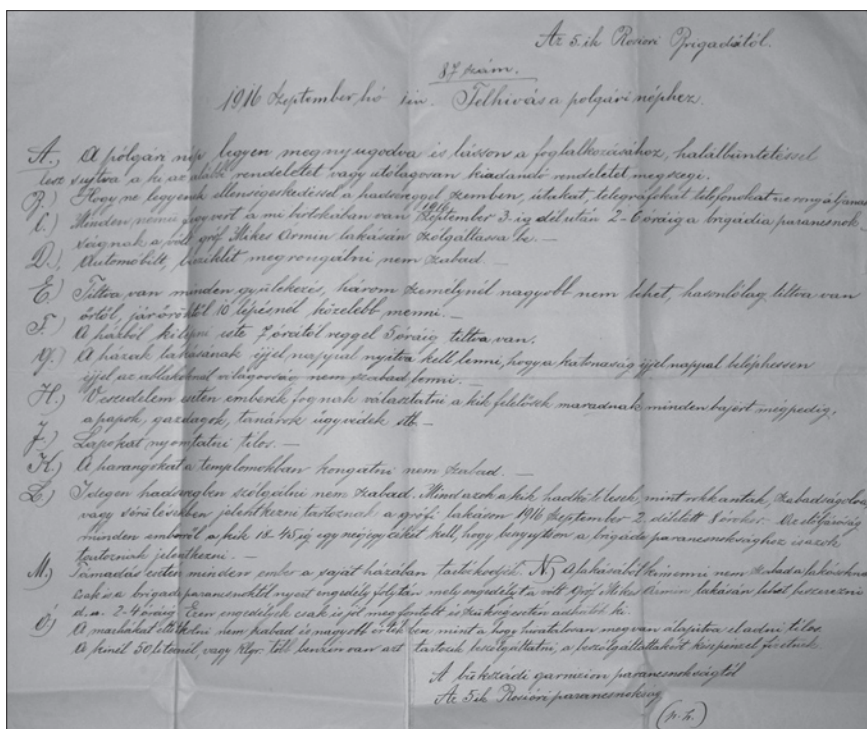 Az 5.ik Rosiori Brigadától.
87 szám.
1916 Szeptember hó 1én. Felhivás a polgári néphez.
A.) A polgári nép legyen megnyugodva és lásson a foglalkozásához, halálbüntetéssel
lesz sujtva a ki az alábbi rendeletet vagy utólagosan kiadandó rendeletet megszegi.
B.) Hogy ne legyenek ellenségeskedéssel a hadsereggel szemben, útakat, telegráfokat telefonokat ne rongáljanak
C.) Minden nemü fegyvert a mi birtokában van Szeptember 3.ig délután 2-6 óráig a brigádia parancsnok-
ságnak a volt gróf Mikes Ármin lakásán szólgáltassa be. —
D.) Automobilt, biciklit megrongálni nem szabad. —
E.) Tiltva van minden gyülekezés, három személynél nagyobb nem lehet, hasonlólag tiltva van
őrtől, járőröktől 10 lépésnél közelebb menni. —
F.) A házból kilépni este 7 órától reggel 5 óráig tiltva van.
G.) A házak lakásának éjjel nappal nyitva kell lenni, hogy a katonaság éjjel nappal beléphessen
éjjel az ablakoknál világosság nem szabad lenni. —
H.) Veszedelem esetén emberek fognak választatni a kik felelősek maradnak minden bajért mégpedig,
a papok, gazdagok, tanárok ügyvédek stb —
J.) Lapokat nyomtatni tilos. —
K.) A harangokat a templomokban kongatni nem szabad. —
L.) Idegen hadseregben szólgálni nem szabad. Mind azok a kik hadkötelesek, mint rokkantak, szabadságolva,
vagy sérülésekben jelentkezni tartoznak a grófi lakáson 1916 Szeptember 2. délelőtt 8 órakor. Az elöljáróság
minden emberről a kik 18-45 ig egy névjegyzéket kell, hogy benyujtson a brigáde parancsnoksághoz is azok
tartoznak jelentkezni. —
M.) Támadás esetén minden ember a saját házában tartózkodjék. N.) A lakásából kimenni nem szabad a lakósoknak
csakis a brigade parancsnoktól nyert engedély folytán mely engedélyt a volt Gróf Mikes Ármin lakásán lehet beszerezni
d.u. 2-4 óráig. Ezen engedélyek csakis jól megfontolt és szükség esetén adhatók ki.
Ó.) A marhákat eltitkolni nem szabad és nagyobb értékben mint a hogy hivatalosan meg van álapitva eladni tilos.
A kinél 50 liternél, vagy klgr. több benzin van azt tartozik beszólgáltatni, a beszólgáltatákért készpénzel fizetünk
A bükszádi garnizion parancsnokságtól
Az 5 ik Rosióri parancsnokság
(p.h.)